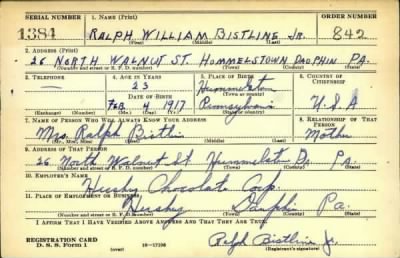 SERIAL NUMBER 1. NAME (Print) ORDER NUMBER
1384 RALPH WILLIAM BISTLINE JR. 842
(First) (Middle) (Last)
2. ADDRESS (Print)
26 NORTH WALNUT ST. HUMMELSTOWN DAUPHIN PA.
(Number and street or R. F. D. number) (Town) (County) (State)
3. TELEPHONE 4. AGE IN YEARS 5. PLACE OF BIRTH 6. COUNTRY OF CITIZENSHIP
— 23 Hummelstown
DATE OF BIRTH (Town or county)
FEB. 4 1917 Pennsylvania U.S.A
(Exchange) (Number) (Mo.) (Day) (Yr.) (State or country)
7. NAME OF PERSON WHO WILL ALWAYS KNOW YOUR ADDRESS 8. RELATIONSHIP OF THAT PERSON
Mrs. Ralph Bistline Mother
(Mr., Mrs., Miss) (First) (Middle) (Last)
9. ADDRESS OF THAT PERSON
26 North Walnut St. Hummelstown Da. PA.
(Number and street or R. F. D. number) (Town) (County) (State)
10. EMPLOYER'S NAME
Hershy Chocolate Corp.
11. PLACE OF EMPLOYMENT OR BUSINESS
Hershy Dauphin Pa.
(Number and street or R. F. D. number) (Town) (County) (State)
I AFFIRM THAT I HAVE VERIFIED ABOVE ANSWERS AND THAT THEY ARE TRUE.
REGISTRATION CARD Ralph Bistline Jr.
D. S. S. Form 1 (over) 16—17108 (Registrant's signature)